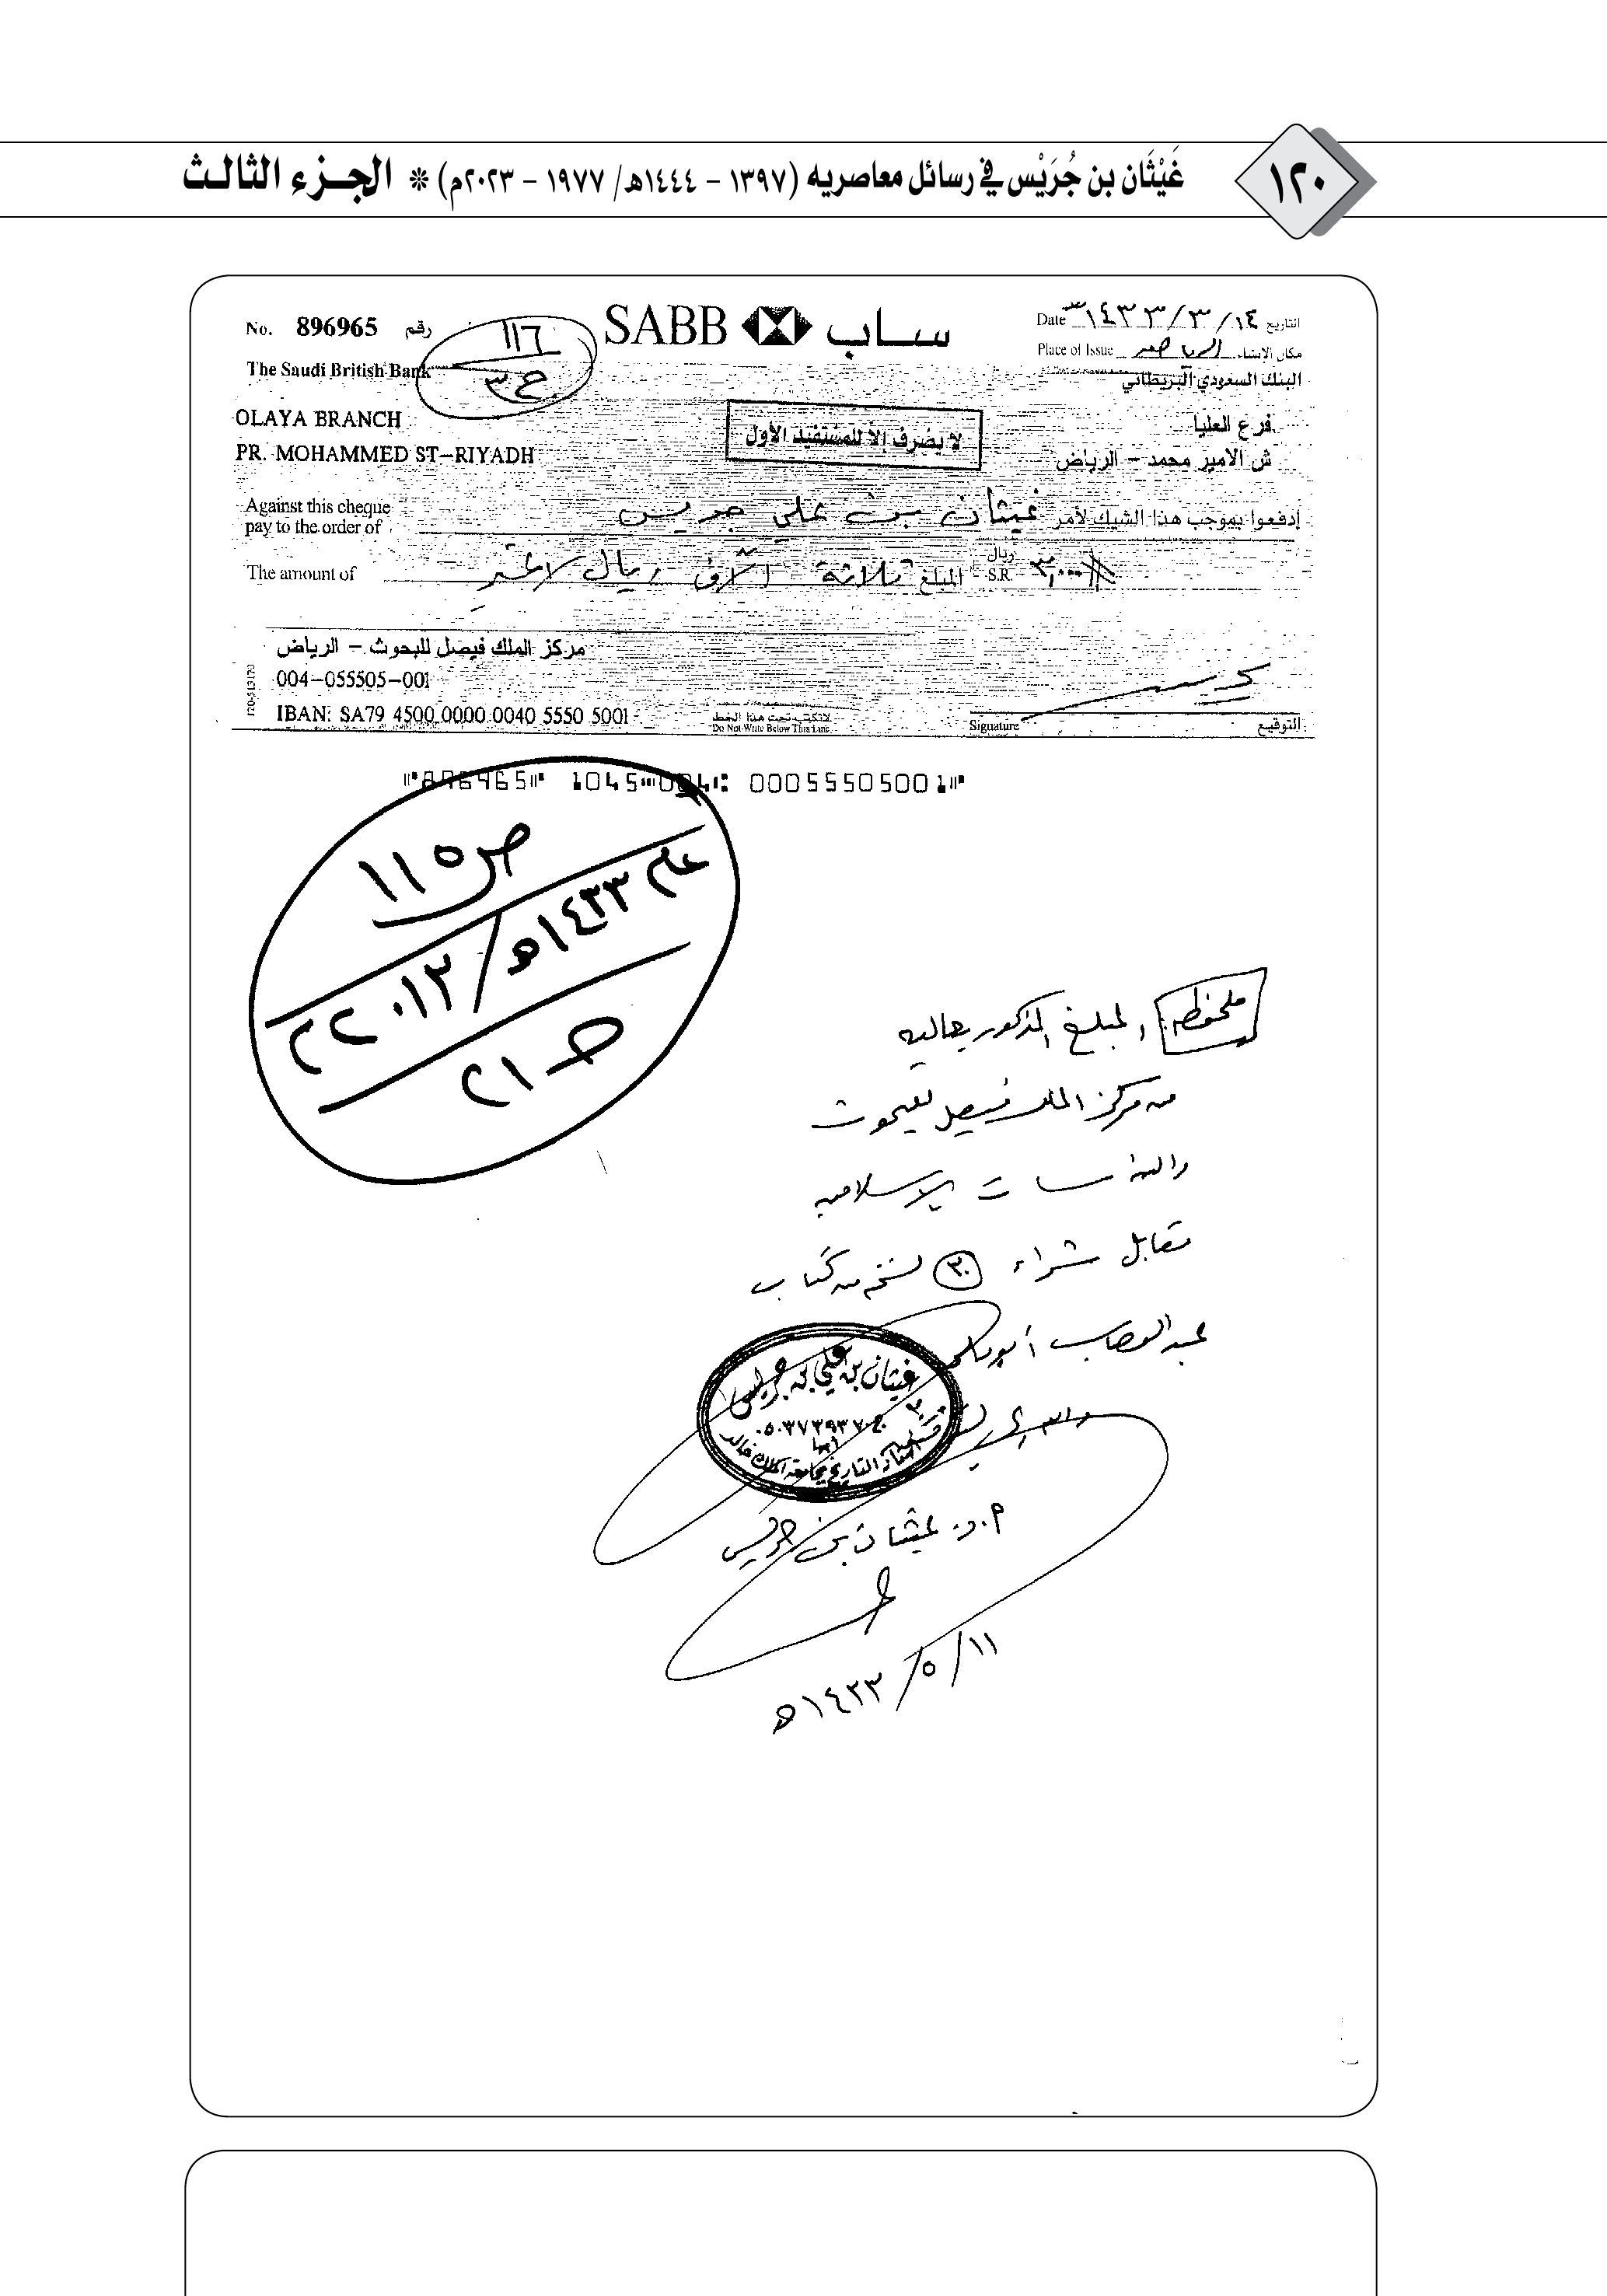 ١٢٠
غَيْثَان بن جُرَيْس في رسائل معاصريه (١٣٩٧ - ١٤٤٤هـ/ ١٩٧٧ - ٢٠٢٣م) * الجـزء الثالث
No. 896965 رقم
١١٦
ح ٣
SABB ساب
Date ١٤٣٣/٣/١٤ التاريخ
Place of Issue الرياض مكان الإنشاء
The Saudi British Bank
البنك السعودي البريطاني
OLAYA BRANCH
فرع العليا
PR. MOHAMMED ST-RIYADH
ش الامير محمد - الرياض
لا يصرف إلا للمستفيد الأول
Against this cheque
pay to the order of
إدفعوا بموجب هذا الشيك لأمر غيثان بن علي جريس
The amount of
المبلغ ثلاثة آلاف ريال لاغير
ريال
S.R. ٣,٠٠٠
مركز الملك فيصل للبحوث - الرياض
004-055505-001
IBAN: SA79 4500 0000 0040 5550 5001
لاتكتب تحت هذا الخط
Do Not Write Below This Line
Signature التوقيع
896965 1045 004 00055505001
ص ١١٥
عام ١٤٣٣هـ/٢٠١٢م
حـ ٢١
ملحوظة: المبلغ المذكور بعاليه
من مركز الملك فيصل للبحوث
والدراسات الإسلامية
مقابل شراء ٣٠ نسخة من كتاب
عبدالوهاب أبو ملحة
غيثان بن علي بن جريس
أستاذ التاريخ بجامعة الملك خالد
أ.د. غيثان بن جريس
١١/٥/١٤٣٣هـ